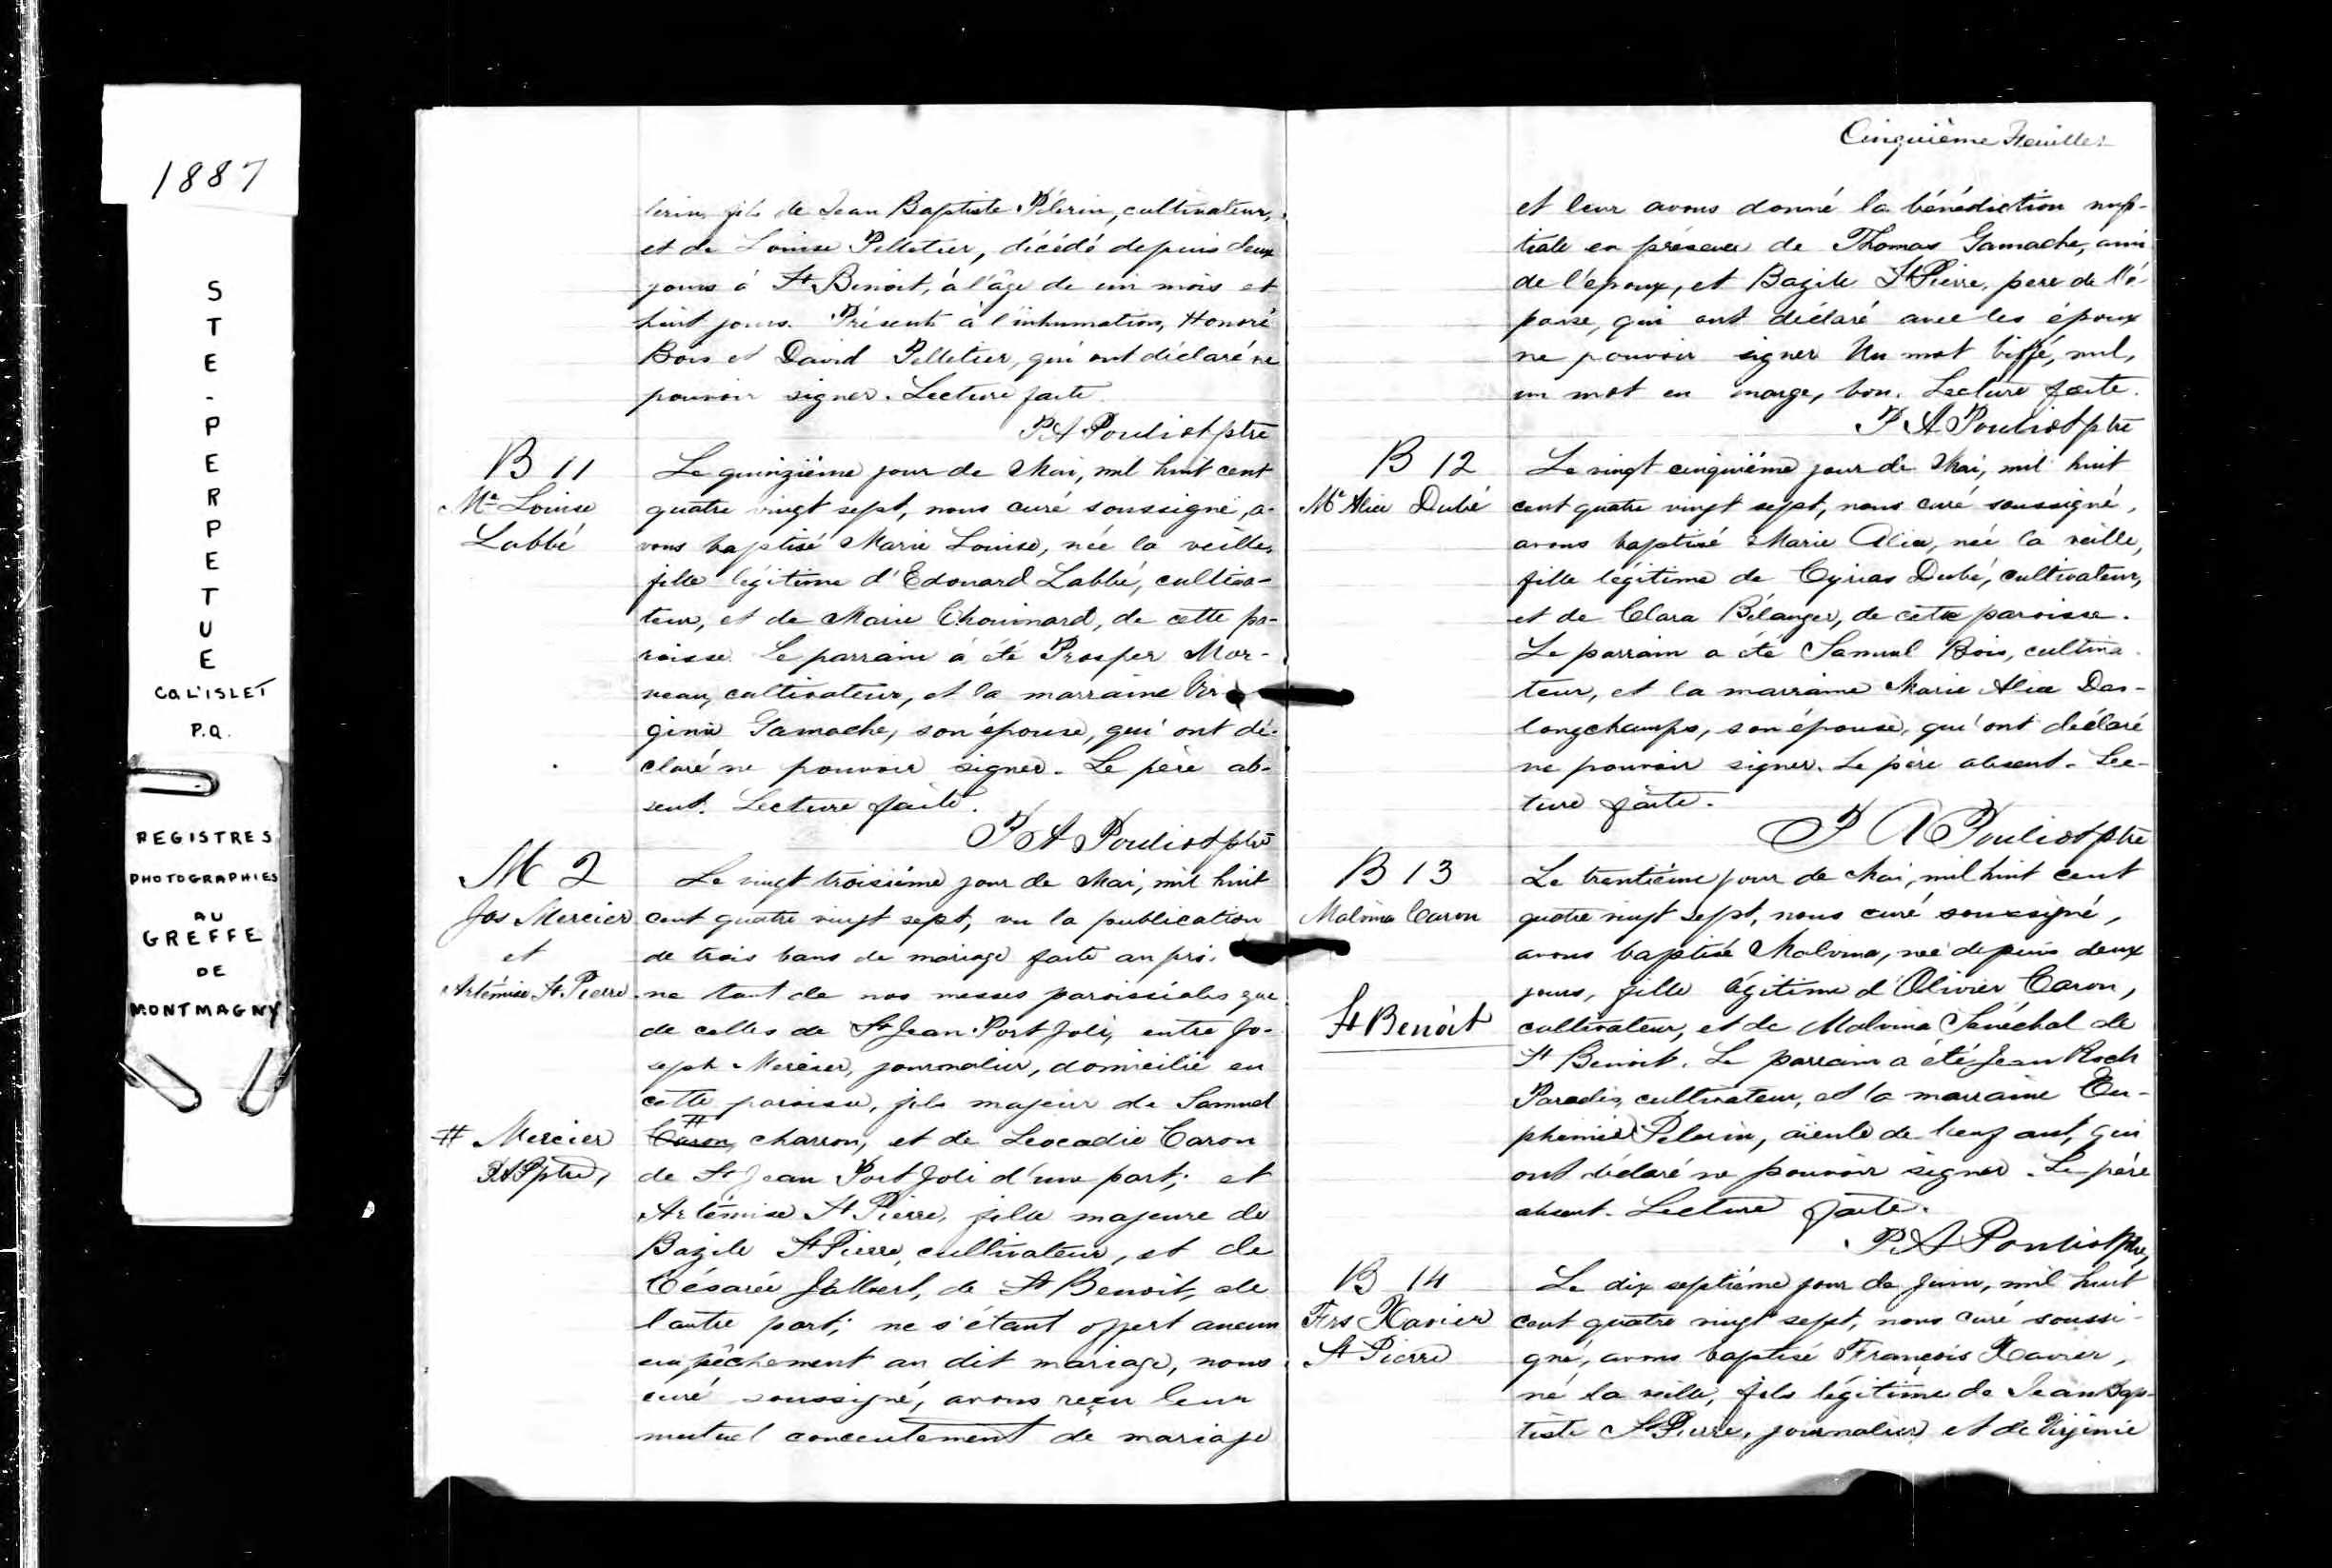 1887
STE-PERPETUE
CO L'ISLET
P.Q.
REGISTRES
PHOTOGRAPHIES
AU
GREFFE
DE
MONTMAGNY
lerin, fils de Jean Baptiste Pélerin, cultivateur,
et de Louise Pelletier, décédé depuis deux
jours à St Benoit, à l'âge de un mois et
huit jours. Présents à l'inhumation, Honoré
Bois et David Pelletier, qui ont déclaré ne
pouvoir signer. Lecture faite.
P A Pouliot ptre
B 11
Me Louise
Labbé
Le quinzième jour de Mai, mil huit cent
quatre vingt sept, nous curé soussigné, a-
vons baptisé Marie Louise, née la veille,
fille légitime d'Edouard Labbé, cultiva-
teur, et de Marie Chouinard, de cette pa-
roisse. Le parrain a été Prosper Mor-
neau, cultivateur, et la marraine Vir
ginie Gamache, son épouse, qui ont dé-
claré ne pouvoir signer. Le père ab-
sent. Lecture faite.
P A Pouliot ptre
M 2
Jos Mercier
et
Artémise St Pierre
Le vingt troisième jour de Mai, mil huit
cent quatre vingt sept, vu la publication
de trois bans de mariage faite au prô-
ne tant de nos messes paroissiales que
de celles de St Jean Port Joli, entre Jo-
seph Mercier, journalier, domicilié en
cette paroisse, fils majeur de Samuel
# Mercier
P A P ptre,
#
Caron, charron, et de Leocadie Caron
de St Jean Port Joli d'une part; et
Artémise St Pierre, fille majeure de
Bazile St Pierre, cultivateur, et de
Césarée Jalbert, de St Benoit, de
l'autre part; ne s'étant offert aucun
empêchement au dit mariage, nous
curé soussigné, avons reçu leur
mutuel concentement de mariage
Cinquième Feuillet
et leur avons donné la bénédiction nup-
tiale en présence de Thomas Gamache, ami
de l'époux, et Bazile St Pierre, père de l'é-
pouse, qui ont déclaré avec les époux
ne pouvoir signer Un mot biffé, nul,
un mot en marge, bon. Lecture faite.
P A Pouliot ptre
B 12
Me Alice Dubé
Le vingt cinquième jour de Mai, mil huit
cent quatre vingt sept, nous curé soussigné,
avons baptisé Marie Alice, née la veille,
fille légitime de Cyrias Dubé, cultivateur,
et de Clara Bélanger, de cette paroisse.
Le parrain a été Samuel Bois, cultiva
teur, et la marraine Marie Alice Des-
longchamps, son épouse, qui ont déclaré
ne pouvoir signer. Le père absent. Lec-
ture faite.
P A Pouliot ptre
B 13
Malvina Caron
St Benoit
Le trentième jour de Mai, mil huit cent
quatre vingt sept, nous curé soussigné,
avons baptisé Malvina, née depuis deux
jours, fille légitime d'Olivier Caron,
cultivateur, et de Malvina Sénéchal de
St Benoit. Le parrain a été Jean Roch
Paradis, cultivateur, et la marraine Eu-
phemie Pelerin, aïeule de l'enfant, qui
ont déclaré ne pouvoir signer. Le père
absent. Lecture faite.
P A Pouliot ptre,
B 14
Frs Xavier
St Pierre
Le dix septième jour de Juin, mil huit
cent quatre vingt sept, nous curé soussi-
gné, avons baptisé François Xavier,
né la veille, fils légitime de Jean Bap-
tiste St Pierre, journalier et de Virjinie